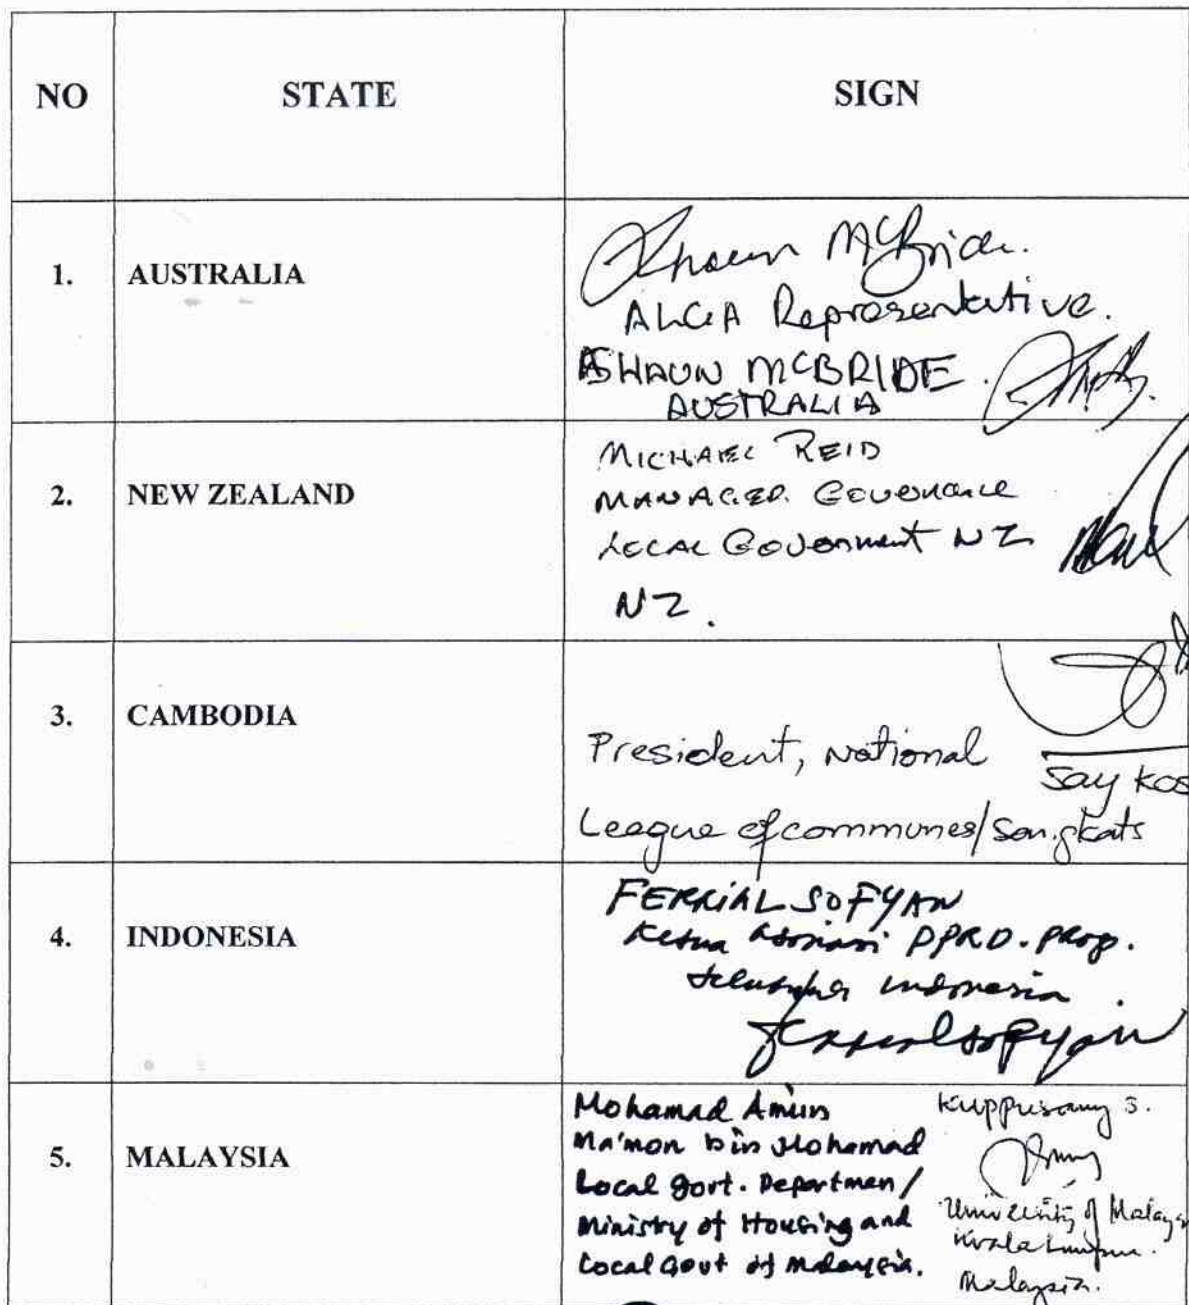 NO STATE SIGN
1. AUSTRALIA
Shaun McBride.
ALGA Representative.
SHAUN MCBRIDE.
AUSTRALIA
2. NEW ZEALAND
MICHAEL REID
MANAGER. Governance
LOCAL Government NZ
NZ.
3. CAMBODIA
President, National
Say Kos
League of communes/Sangkats
4. INDONESIA
FERRIAL SOFYAN
Ketua Asosiasi DPRD. Prop.
Seluruh Indonesia.
Ferrial Sofyan
5. MALAYSIA
Mohamad Amin
Ma'mon bin Mohamad
Local Govt. Departmen/
Ministry of Housing and
Local Govt of Malaysia.
Kuppusamy S.
University of Malaya
Kuala Lumpur.
Malaysia.